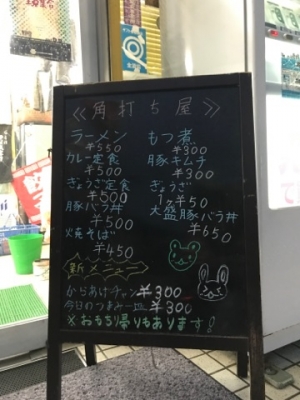 ≪角打ち屋≫
ラーメン
¥550
カレー定食
¥500
ぎょうざ定食
¥500
豚バラ丼
¥500
焼そば
¥450
もつ煮
¥300
豚キムチ
¥300
ぎょうざ
1ヶ¥50
大盛豚バラ丼
¥650
新メニュー
からあげチャン ¥300
今日のつまみ一皿 ¥300
※おもち帰りもあります!